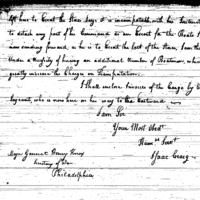 left here to Escort the
to attach any part of his Command as an Escort for the Boats I
am sending forward, as he is to Escort the last of them, I am therefore
Under a necessity of having an additional Number of Boatmen, which
greatly increase the Charge on Transportation.
I shall enclose Invoices of the Cargo by
who is now here on his way to the
I am Sir
Your Most Obedt
Humle Servt
Isaac Craig
Major General Henry Knox
Secretary of War
Philadelphia